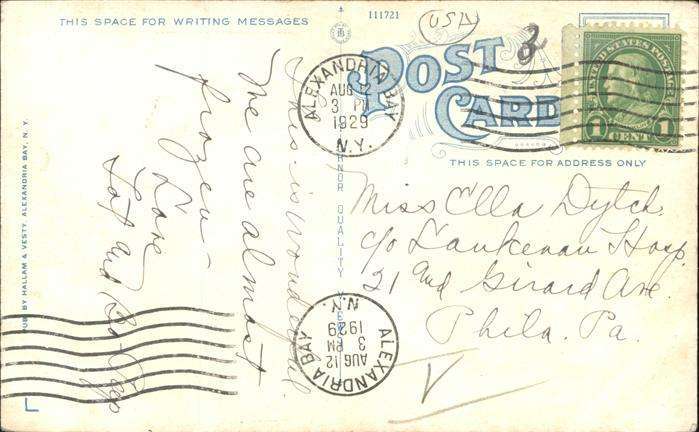 THIS SPACE FOR WRITING MESSAGES
111721
USA
3
POST
CARD
UNITED STATES POSTAGE
1 CENT 1
ALEXANDRIA BAY
AUG 12
3 PM
1929
N.Y.
THIS SPACE FOR ADDRESS ONLY
Miss Ella Dytch
c/o Lankenau Hosp.
21 and Girard Ave.
Phila. Pa.
This is wonderful
We are almost
frozen -
Love
Lot and
QUALITY
PUB. BY HALLAM & VESTY, ALEXANDRIA BAY, N. Y.
ALEXANDRIA BAY
AUG 12
3 PM
1929
N.Y.